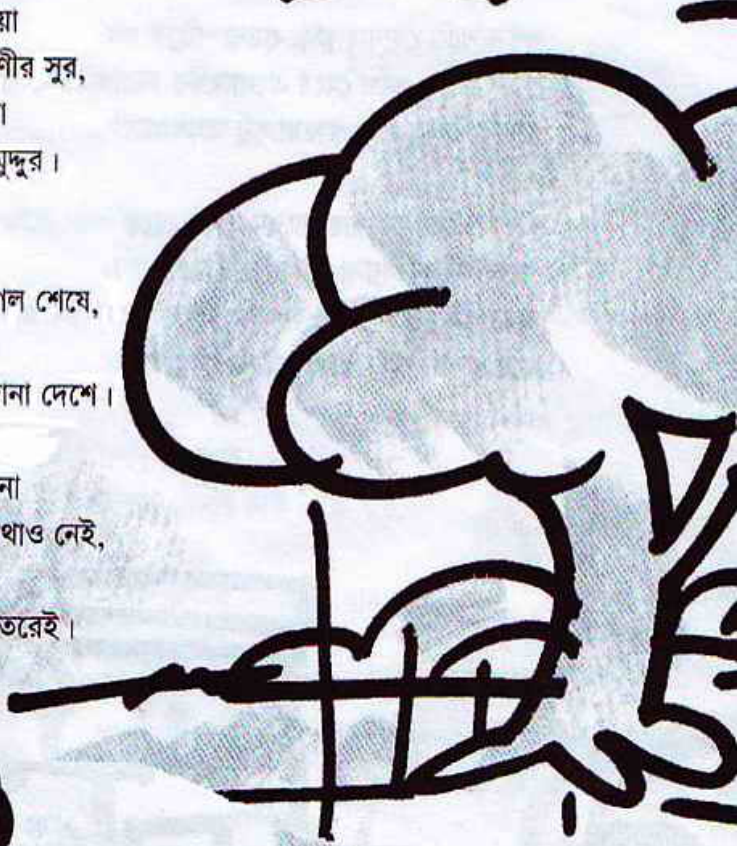 য়া
ণীর সুর,
মুদ্দুর।
শেষে,
দেশে।
থাও নেই,
তরেই।